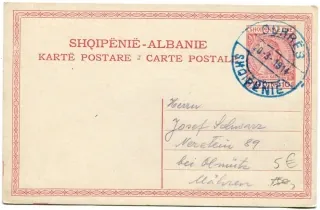 SHQIPËNIË-ALBANIE
KARTË POSTARE : CARTE POSTALE
DURRËS
10.3.1914
SHQIPËNIE
Herrn
Josef Schwarz
Nerstein 69
bei Olmütz
Mähren
5€